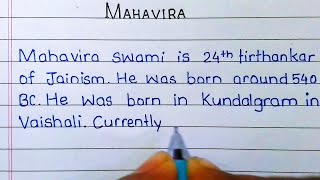 MAHAVIRA
Mahavira swami is 24th tirthankar
of Jainism. He was born around 540
BC. He was born in Kundalgram in
Vaishali. Currently